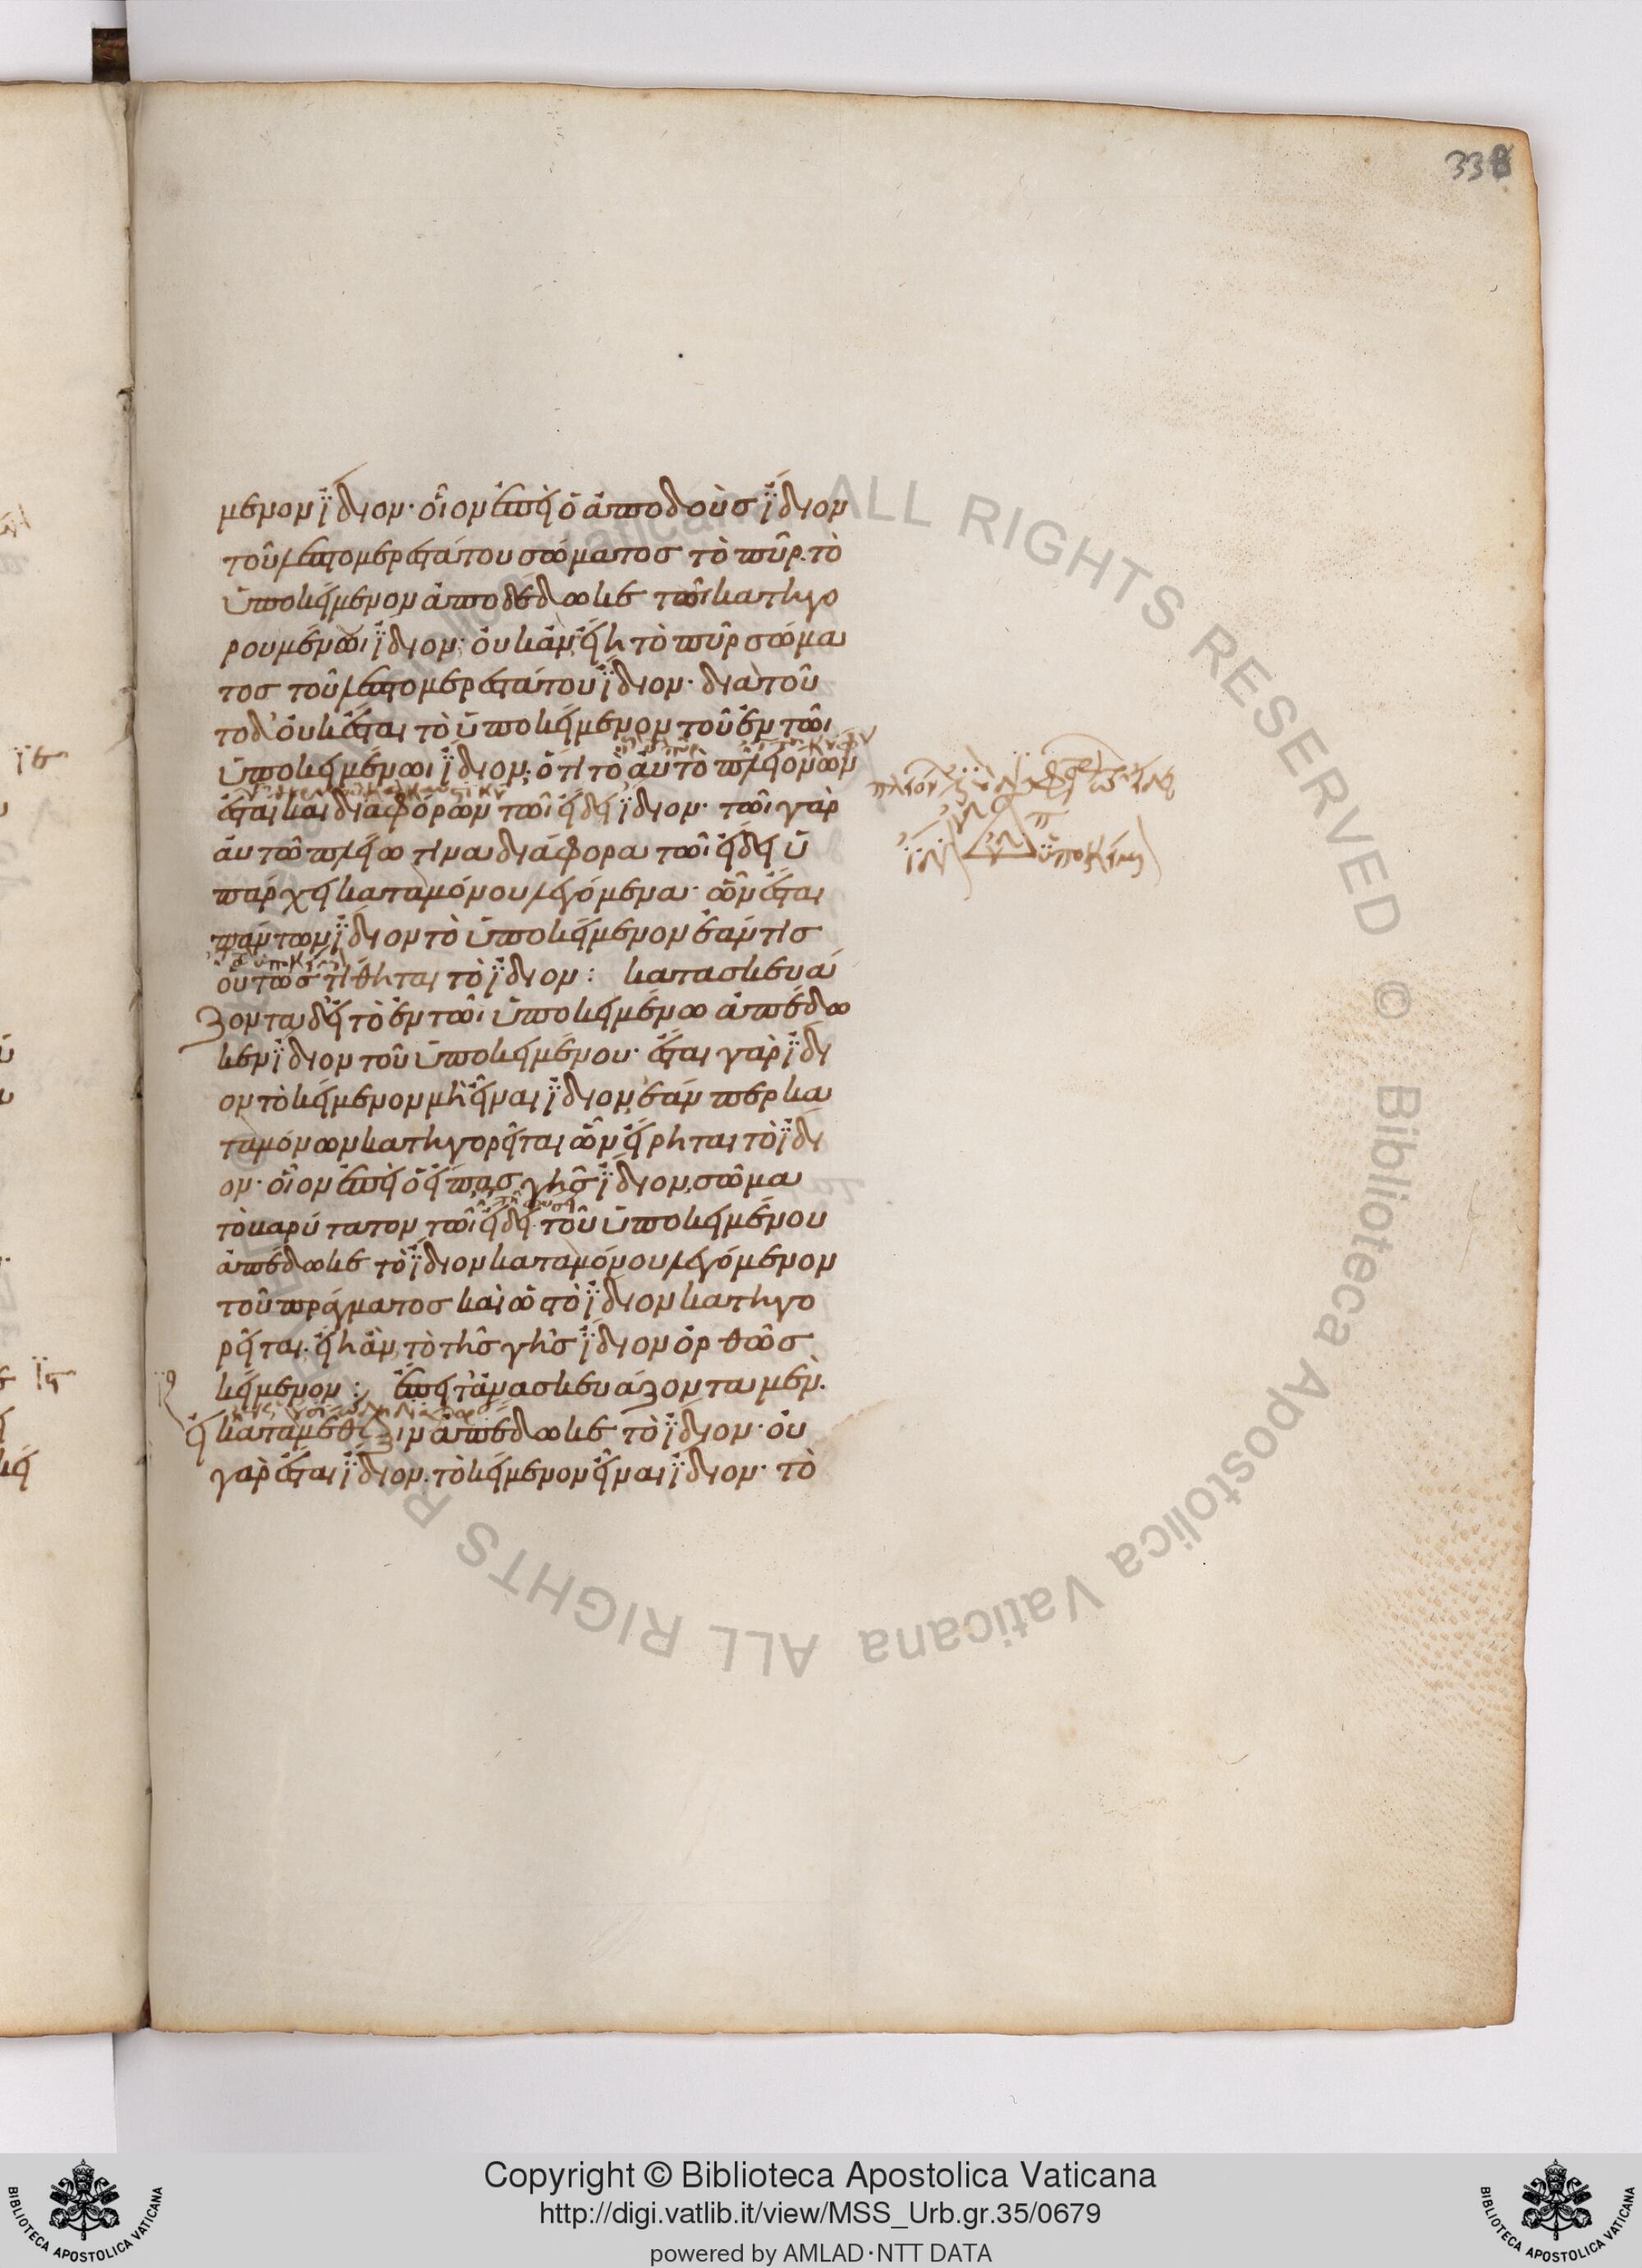 338
μενον ἴδιον· οἷον ἐπεὶ ὁ ἀποδοὺσ ἴδιον
τοῦ λεπτομερεστάτου σώματοσ τὸ πῦρ. τὸ
ὑποκείμενον ἀποδέδωκε τῶι κατηγο
ρουμένωι ἴδιον· οὐκ ἂν εἴη τὸ πῦρ σώμα
τοσ τοῦ λεπτομερεστάτου ἴδιον· διατοῦ
τοδ' οὐκ ἔσται τὸ ὑποκείμενον τοῦ ἐν τῶι
ὑποκειμένωι ἴδιον, ὅτι τὸ αὐτὸ πλειόνων
ἔσται και διαφόρων τῶι εἴδει ἴδιον· τῶι γὰρ
αὐτῶ πλείω τινα διάφορα τῶι εἴδει ὑ
πάρχει καταμόνου λεγόμενα· ὧν ἔσται
πάντων ἴδιον τὸ ὑποκείμενον ἐάν τισ
οὕτωσ τίθηται τὸ ἴδιον: κατασκευά
ζοντα δ' εἰ τὸ ἐν τῶι ὑποκειμένω ἀπέδω
κεν ἴδιον τοῦ ὑποκειμένου· ἔσται γὰρ ἴδι
ον τὸ κείμενον μὴ εἶναι ἴδιον, ἐάν περ κα
ταμόνων κατηγορεῖται ὧν εἴρηται τὸ ἴδι
ον· οἷον ἐπεὶ ὁ εἴπασ γῆσ ἴδιον, σῶμα
τὸ βαρύτατον τῶι εἴδει. τοῦ ὑποκειμένου
ἀπέδωκε τὸ ἴδιον καταμόνου λεγόμενον
τοῦ πράγματοσ καὶ ὡσ τὸ ἴδιον κατηγο
ρεῖται· εἴη ἂν τὸ τῆσ γῆσ ἴδιον ὀρθῶσ
κείμενον: ἔπειτ' ἀνασκευάζοντα μὲν.
εἰ κατα μέθεξιν ἀπέδωκε τὸ ἴδιον· οὐ
γὰρ ἔσται ἴδιον. τὸ κείμενον εἶναι ἴδιον· τὸ
Copyright © Biblioteca Apostolica Vaticana
http://digi.vatlib.it/view/MSS_Urb.gr.35/0679
powered by AMLAD·NTT DATA
BIBLIOTECA APOSTOLICA VATICANA
BIBLIOTECA APOSTOLICA VATICANA
ALL RIGHTS RESERVED © Biblioteca Apostolica Vaticana ALL RIGHTS